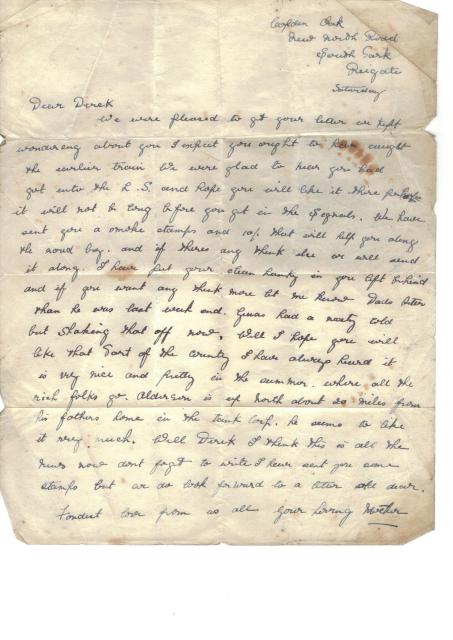 Golden Oak
New North Road
South Park
Reigate
Saturday
Dear Derek
We were pleased to get your letter we kept
wondering about you I expect you ought to have caught
the earlier train We were glad to hear you had
got into the L.S. and hope you will like it there perhaps
it will not be long before you get in the Signals. We have
sent you a smoke stamps and 10/- that will help you along
the road boy. and if theres any think else we will send
it along. I have put your clean hanky in you left behind
and if you want any think more let me know Dads better
than he was last week end. had a nasty cold
but shaking that off now. Well I hope you will
like that Sart of the country I have always heard it
is very nice and pretty in the summer. where all the
rich folks go. Alderson is up north about 20 miles from
his fathers home in the tank corp. he seems to like
it very much. Well Derek I think this is all the
news now dont forget to write I have sent you some
stamps but we do look forward to a letter dear.
Fondest love from us all your loving Mother